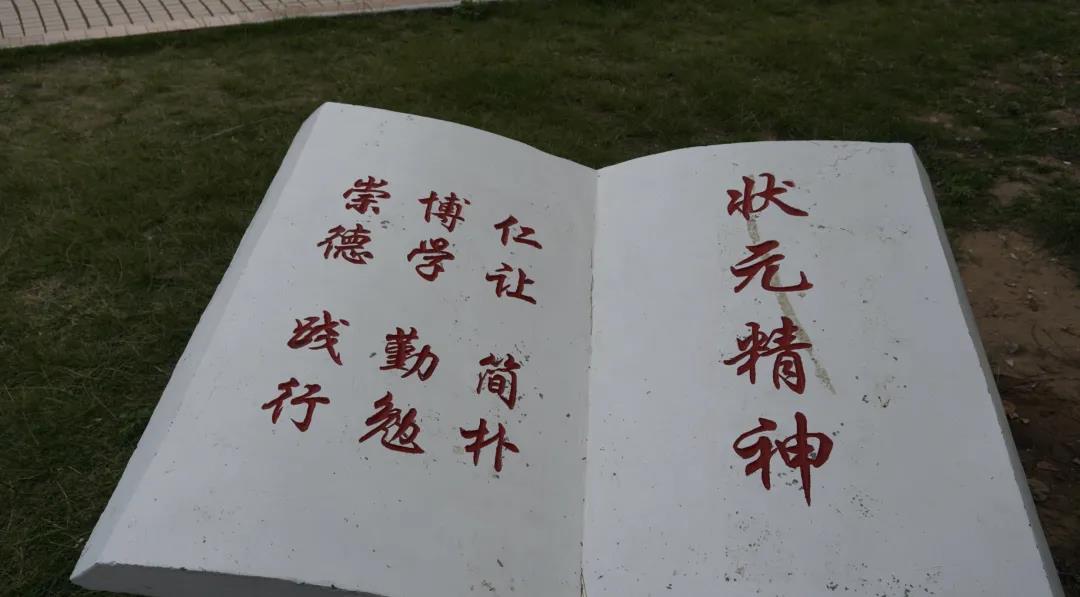 状元精神
仁让 简朴
博学 勤勉
崇德 践行